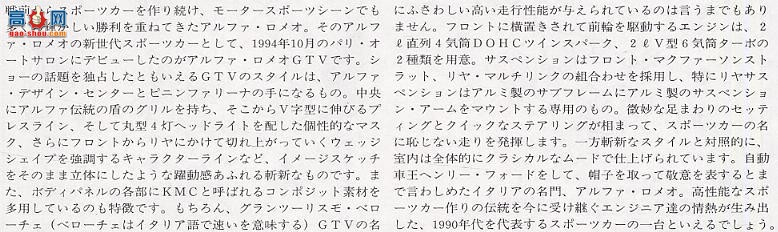 戦前からスポーツカーを作り続け、モータースポーツシーンでも
かしい勝利を重ねてきたアルファ・ロメオ。そのアルフ
ァ・ロメオの新世代スポーツカーとして、1994年10月のパリ・オ
ートサロンにデビューしたのがアルファ・ロメオGTVです。シ
ョーの話題を独占したともいえるGTVのスタイルは、アルファ
・デザイン・センターとピニンファリーナの手になるもの。中央
にアルファ伝統の盾のグリルを持ち、そこからV字型に伸びるプ
レスライン、そして丸型4灯ヘッドライトを配した個性的なマス
ク、さらにフロントからリヤにかけて切れ上がっていくウェッジ
シェイプを強調するキャラクターラインなど、イメージスケッチ
をそのまま立体にしたような躍動感あふれる斬新なものです。ま
た、ボディパネルの各部にKMCと呼ばれるコンポジット素材を
多用しているのも特徴です。もちろん、グランツーリスモ・ベロ
ーチェ（ベローチェはイタリア語で速いを意味する）GTVの名
にふさわしい高い走行性能が与えられているのは言うまでもあり
ません。フロントに横置きされて前輪を駆動するエンジンは、2
ℓ直列4気筒DOHCツインスパーク、2ℓV型6気筒ターボの
2種類を用意。サスペンションはフロント・マクファーソンスト
ラット、リヤ・マルチリンクの組合わせを採用し、特にリヤサス
ペンションはアルミ製のサブフレームにアルミ製のサスペンショ
ン・アームをマウントする専用のもの。微妙な足まわりのセッテ
ィングとクイックなステアリングが相まって、スポーツカーの名
に恥じない走りを発揮します。一方斬新なスタイルと対照的に、
室内は全体的にクラシカルなムードで仕上げられています。自動
車王ヘンリー・フォードをして、帽子を取って敬意を表するとま
で言わしめたイタリアの名門、アルファ・ロメオ。高性能なスポ
ーツカー作りの伝統を今に受け継ぐエンジニア達の情熱が生み出
した、1990年代を代表するスポーツカーの一台といえるでしょう。